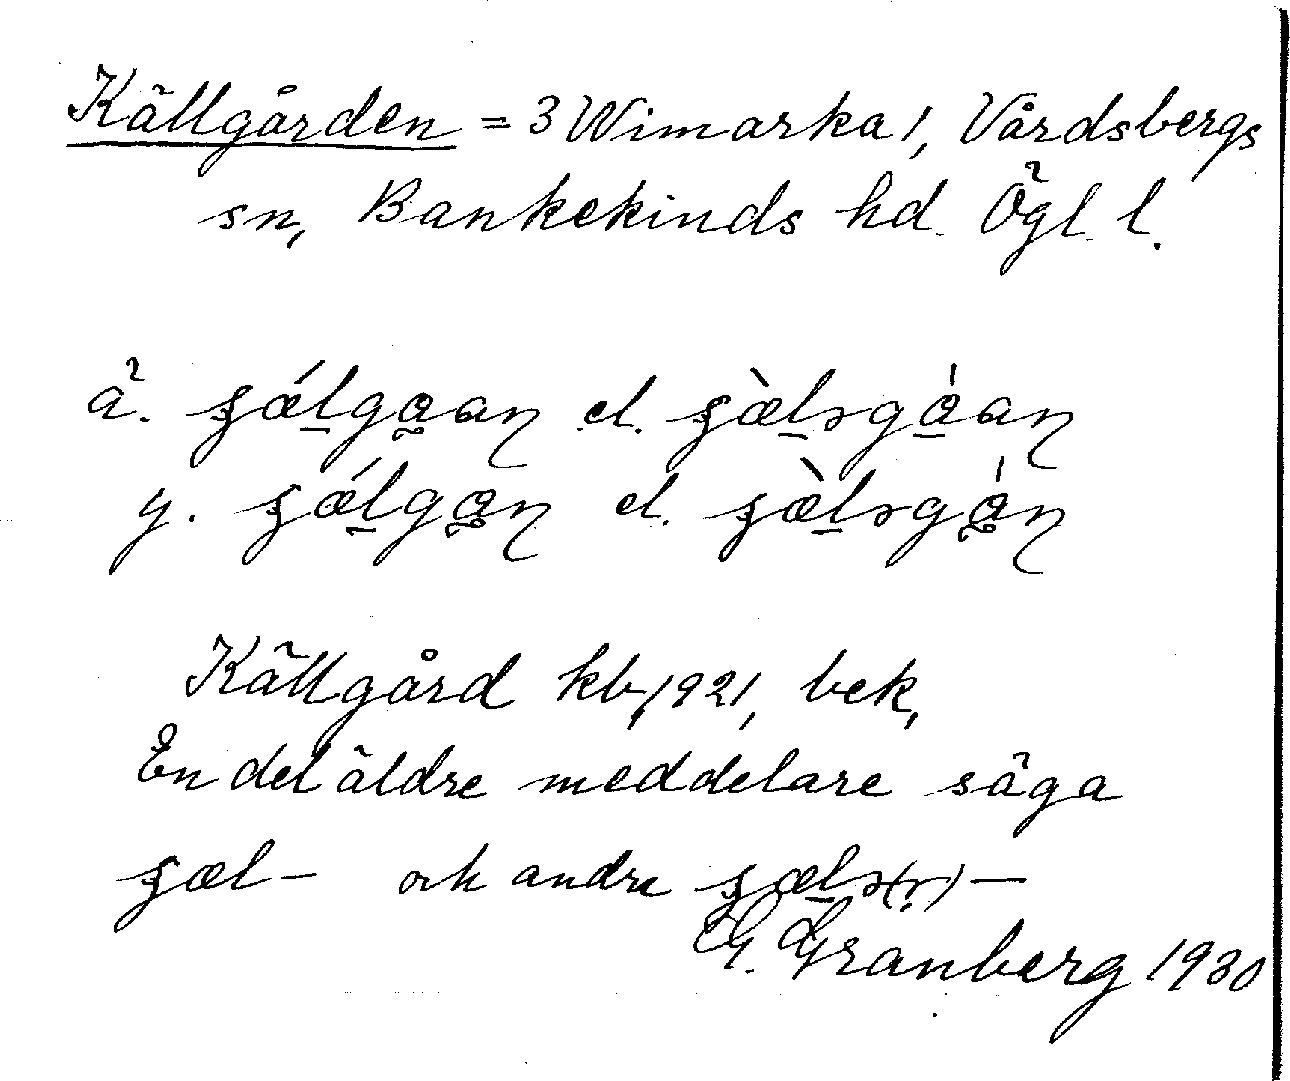 Källgården = 3 Wimarka 1, Vårdsbergs
sn, Bankekinds hd. Ögl. l.
ä. ʂǽlgaaɳ el. ʂæ̀lɘgáaɳ
y. ʂǽlgaɳ el. ʂæ̀lɘgáɳ
Källgård kb, 1921, bek,
En del äldre meddelare säga
ʂæl- och andra ʂælɘ(r)-
G. Granberg 1930